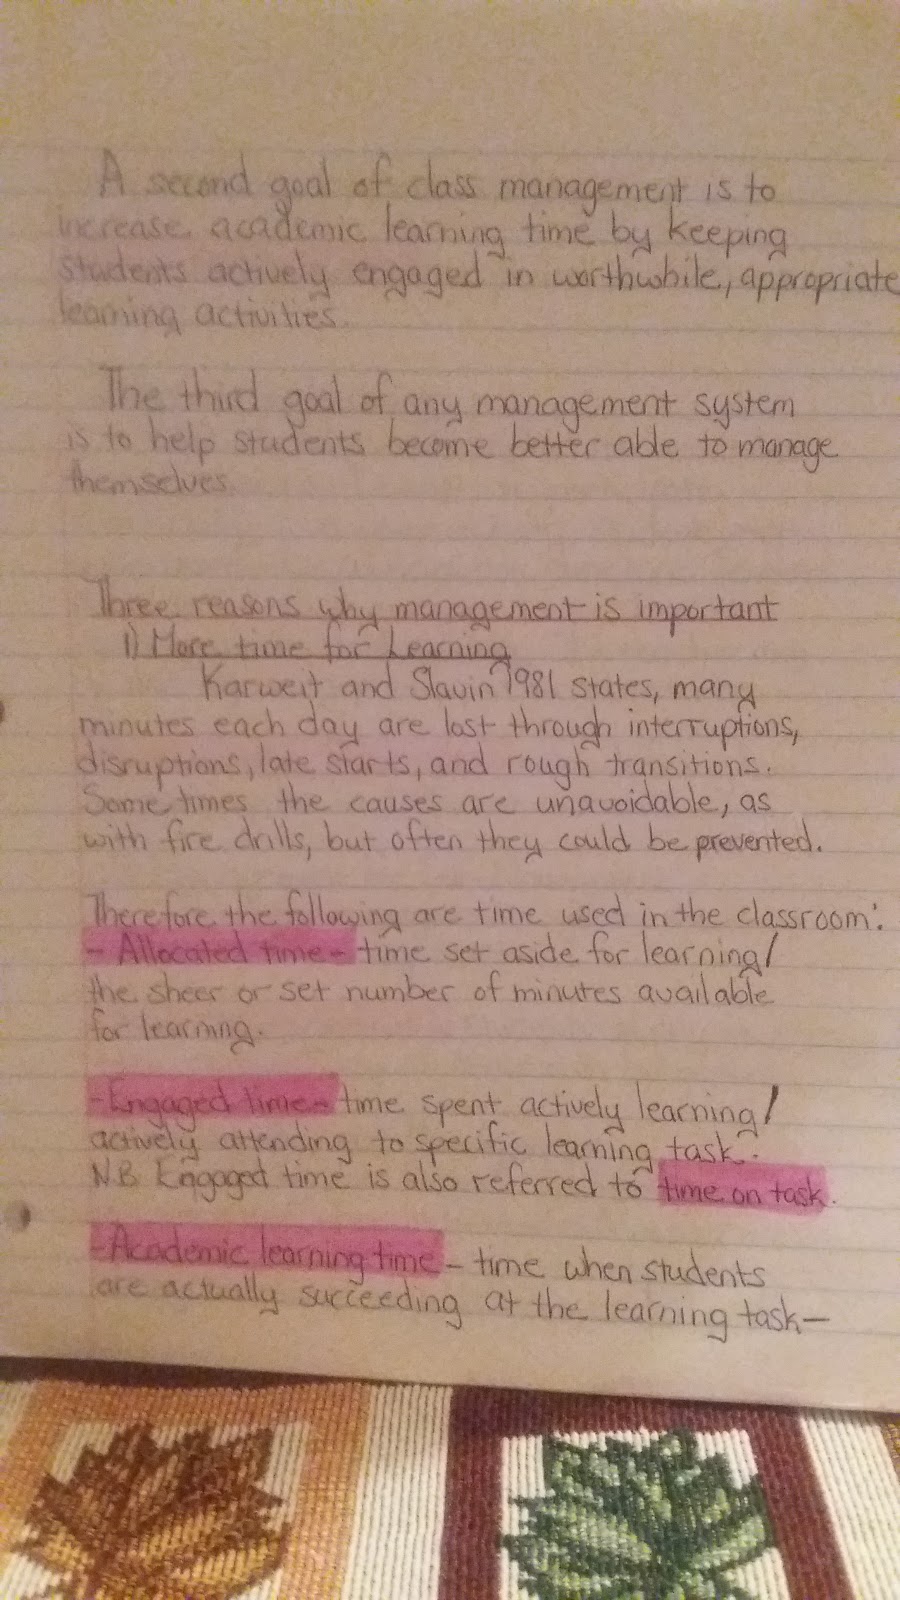 A second goal of class management is to
increase academic learning time by keeping
students actively engaged in worthwhile, appropriate
learning activities.
The third goal of any management system
is to help students become better able to manage
themselves.
Three reasons why management is important
1) More time for Learning
Karweit and Slavin 1981 states, many
minutes each day are lost through interruptions,
disruptions, late starts, and rough transitions.
Sometimes the causes are unavoidable, as
with fire drills, but often they could be prevented.
Therefore the following are time used in the classroom:
- Allocated time - time set aside for learning/
the sheer or set number of minutes available
for learning.
- Engaged time - time spent actively learning/
actively attending to specific learning task.
N.B Engaged time is also referred to time on task.
- Academic learning time - time when students
are actually succeeding at the learning task -